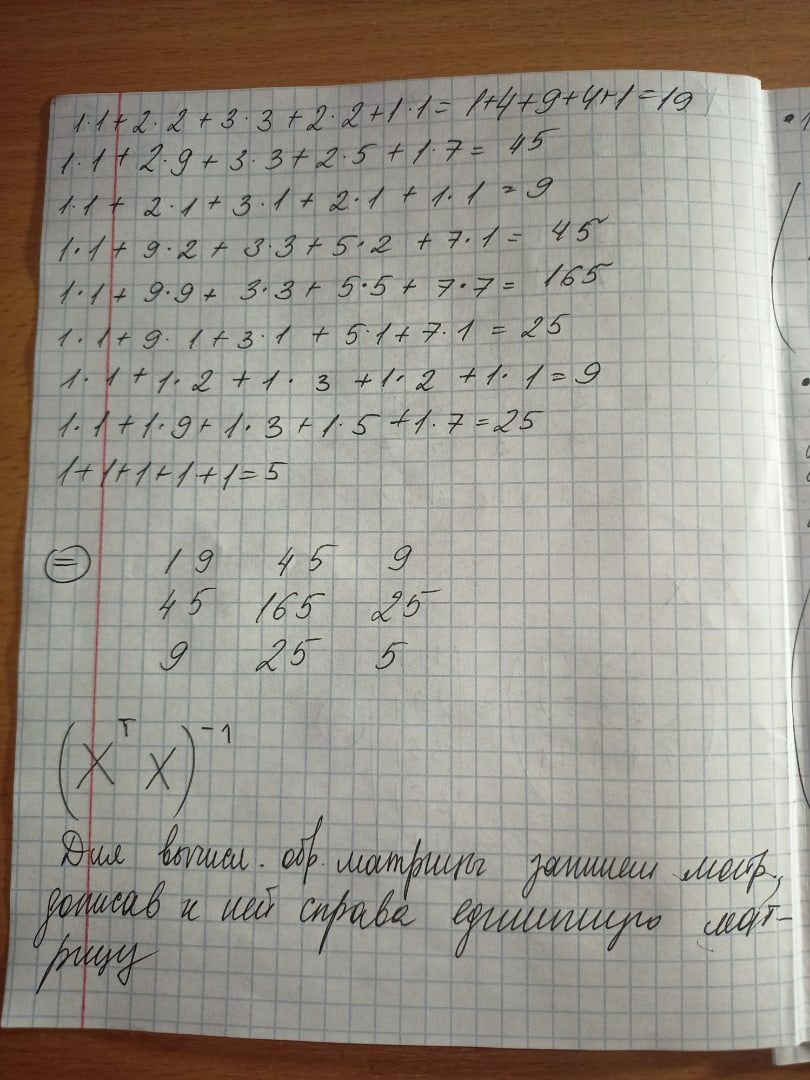 1·1+2·2+3·3+2·2+1·1=1+4+9+4+1=19
1·1+2·9+3·3+2·5+1·7=45
1·1+2·1+3·1+2·1+1·1=9
1·1+9·2+3·3+5·2+7·1=45
1·1+9·9+3·3+5·5+7·7=165
1·1+9·1+3·1+5·1+7·1=25
1·1+1·2+1·3+1·2+1·1=9
1·1+1·9+1·3+1·5+1·7=25
1+1+1+1+1=5
= 19 45 9
45 165 25
9 25 5
(X^T X)^-1
Для вычисл. обр. матрицы запишем матр,
дописав к ней справа единичную мат-
рицу